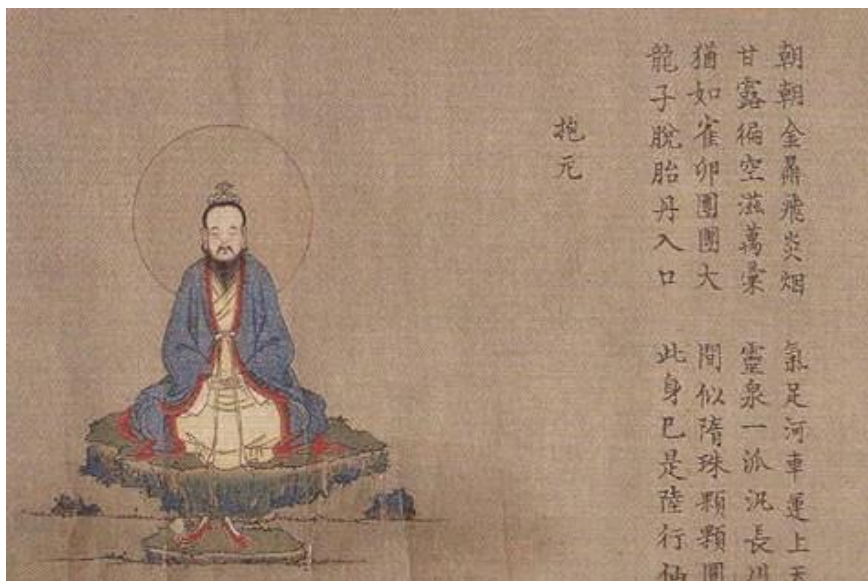 朝朝金鼎飛炎烟 氣足河車運上天
甘露徧空滋萬彙 靈泉一派況長川
猶如雀卵團團大 間似隋珠顆顆圓
龍子脫胎丹入口 此身已是陸行仙
抱元